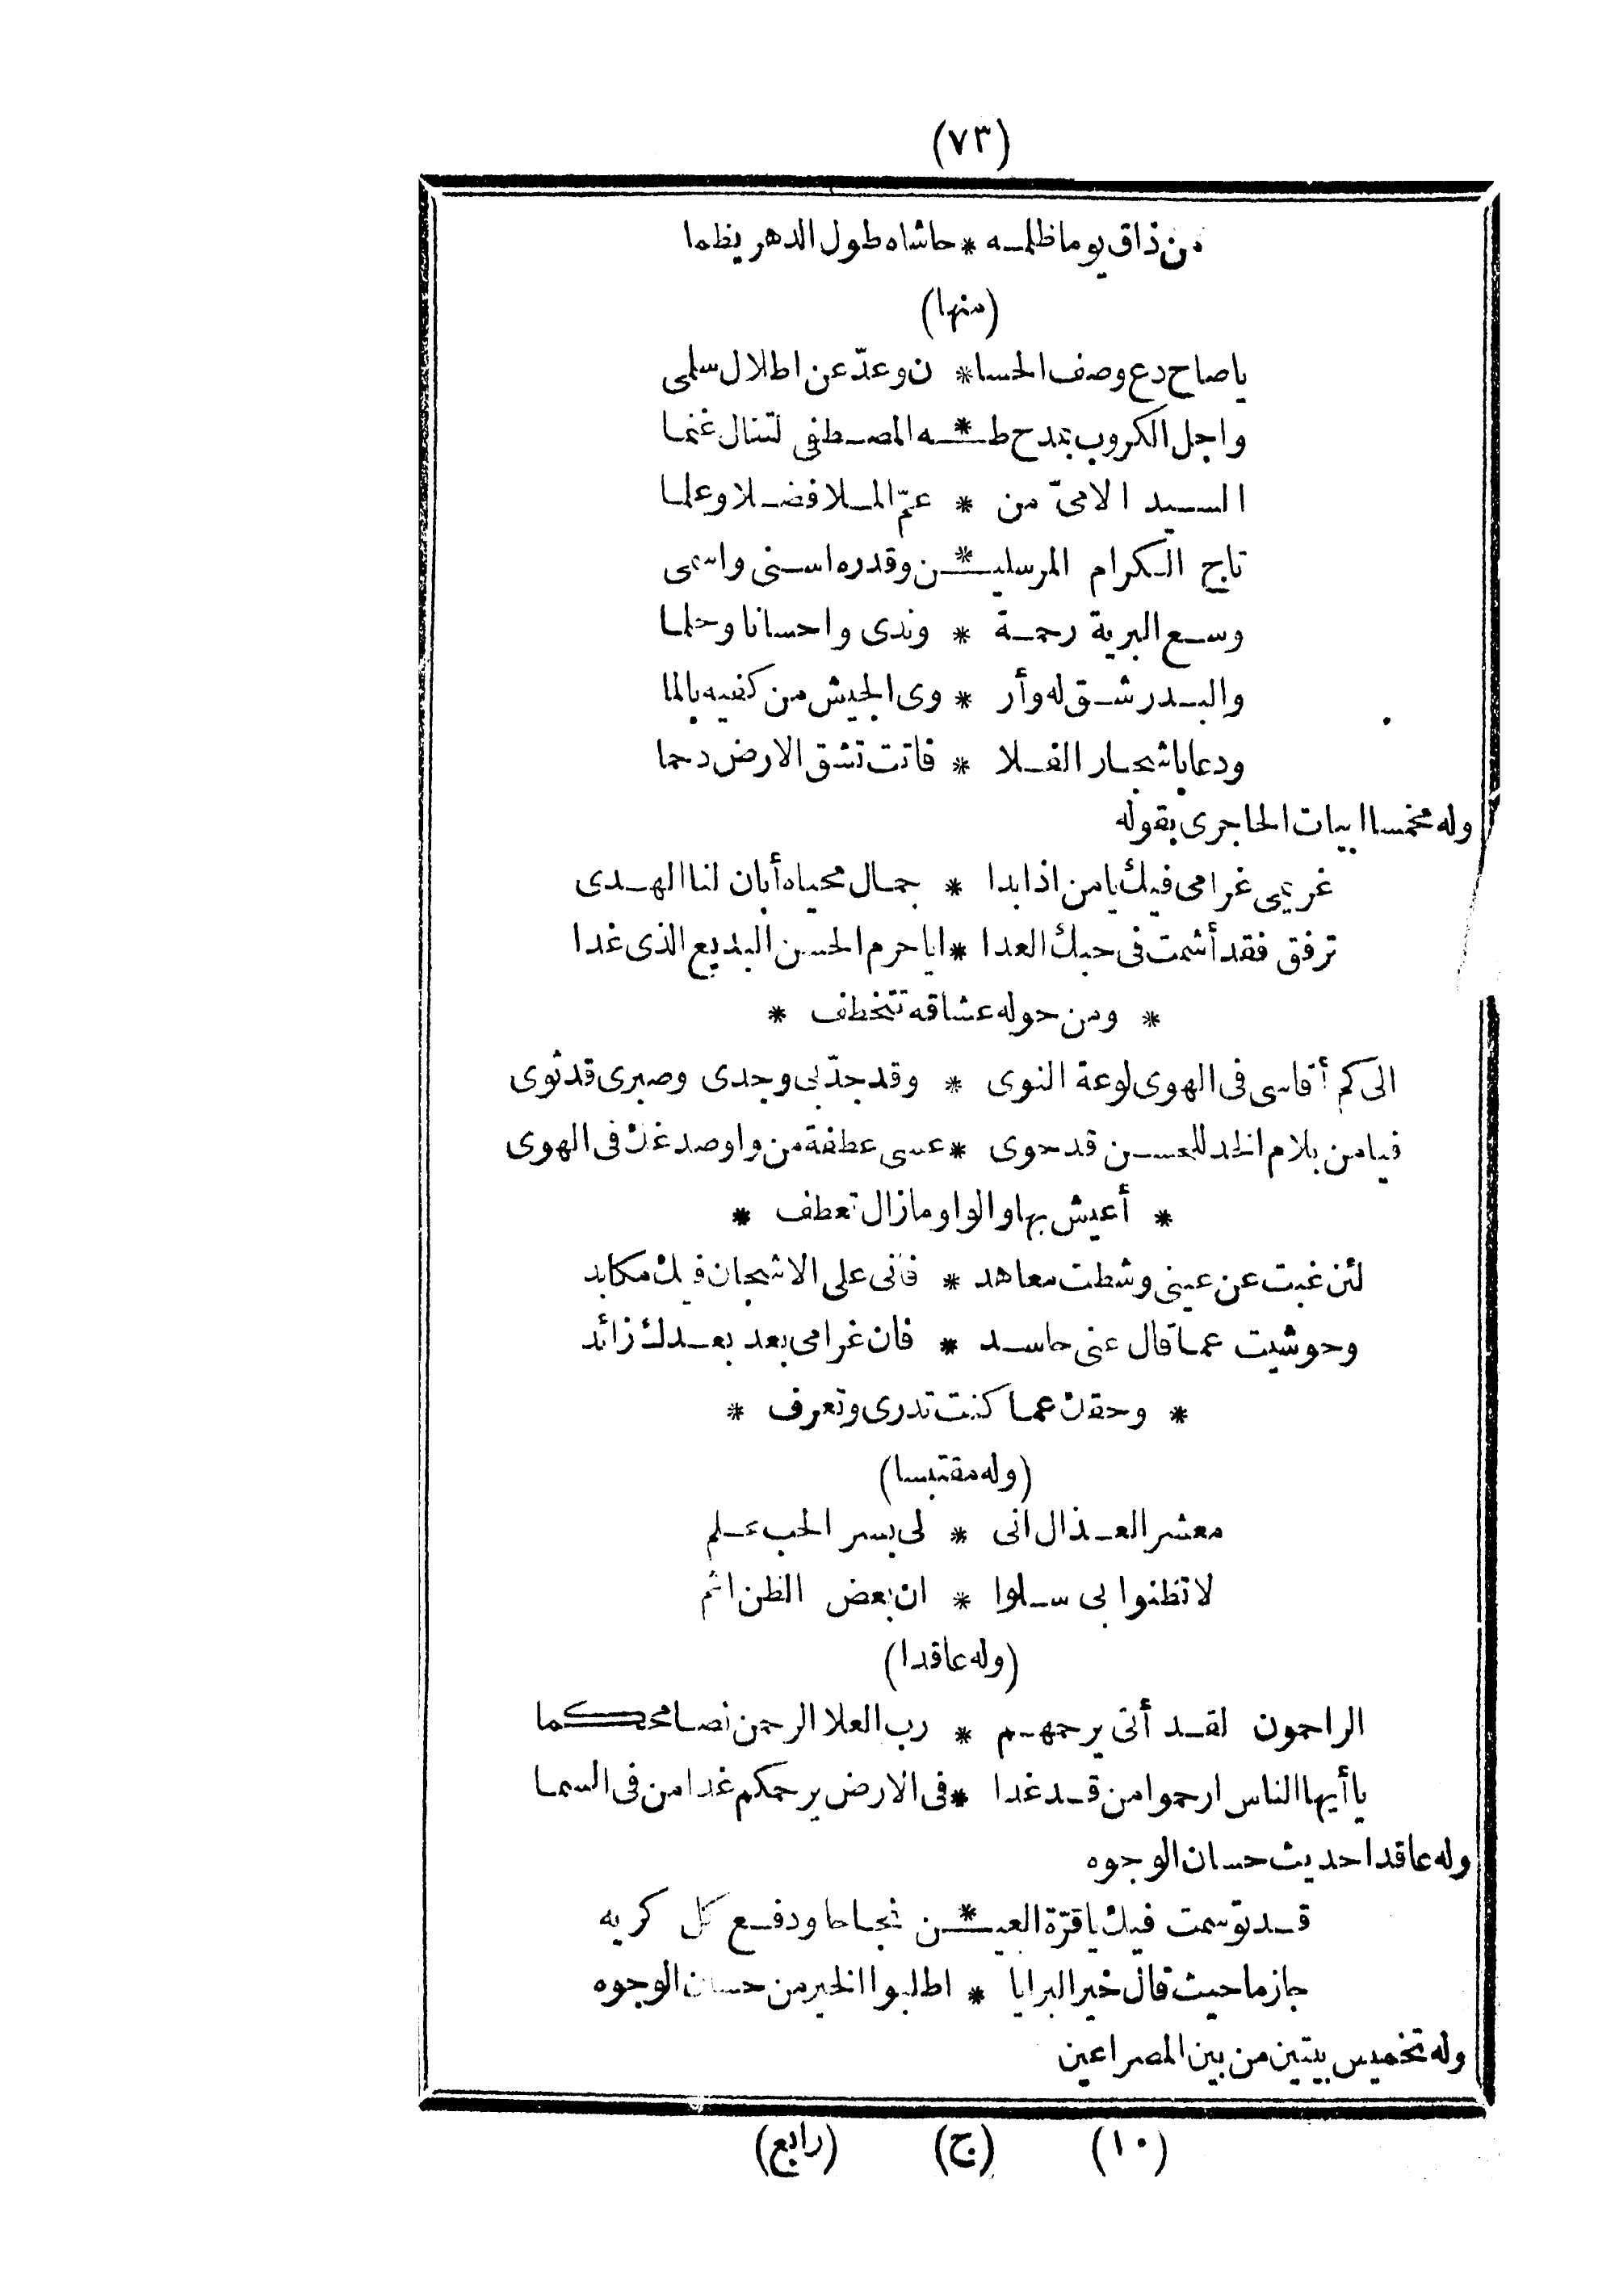 (٧٣)
من ذاق يوما ظلمه * حاشاه طول الدهر يظما
(منها)
يا صاح دع وصف الحسا * ن وعدّ عن اطلال سلمى
واجل الكروب بمدح طـ * ـه المصطفى لتنال غنما
السيد الامىّ من * عمّ الملا فضلا وعلما
تاج الكرام المرسليـ * ـن وقدره اسنى واسمى
وسع البرية رحمة * وندى واحسانا وحلما
والبدر شق له وأر * وى الجيش من كفيه بالما
ودعا باشجار الفلا * فاتت تشق الارض دحما
وله مخمسا ابيات الحاجرى بقوله
غريمى غرامى فيك يا من اذا بدا * جمال محياه أبان لنا الهدى
ترفق فقد أشمت فى حبك العدا * ايا حرم الحسن البديع الذى غدا
* ومن حوله عشاقه تتخطف *
الى كم أقاسى فى الهوى لوعة النوى * وقد جدّ بى وجدى وصبرى قد ثوى
فيا من بلام الخد للحسن قد حوى * عسى عطفة من واو صدغك فى الهوى
* أعيش بها والواو ما زال تعطف *
لئن غبت عن عينى وشطت معاهد * فانى على الاشجان فيك مكابد
وحوشيت عما قال عنى حاسد * فان غرامى بعد بعدك زائد
* وحقك عما كنت تدرى وتعرف *
(وله مقتبسا)
معشر العذال انى * لى بسر الحب علم
لا تظنوا بى سلوا * ان بعض الظن اثم
(وله عاقدا)
الراحمون لقد أتى يرحمهم * رب العلا الرحمن نصا محكما
يا أيها الناس ارحموا من قد غدا * فى الارض يرحمكم غدا من فى السما
وله عاقدا حديث حسان الوجوه
قد توسمت فيك يا قرّة العيـ * ـن نجاحا ودفع كل كريه
جازما حيث قال خير البرايا * اطلبوا الخير من حسان الوجوه
وله تخميس بيتين من بين المصراعين
(١٠) (ج) (رابع)